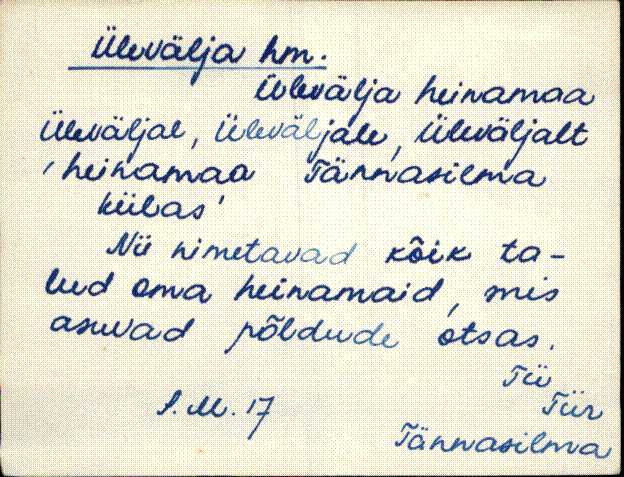 Ülevälja hm.
Ülevälja heinamaa
Üleväljal, Üleväljale, Üleväljalt
'heinamaa Tännasilma
külas'
Nii nimetavad kõik ta-
lud oma heinamaid, mis
asuvad põldude otsas.
Tü
Tür
S.M. 17
Tännasilma